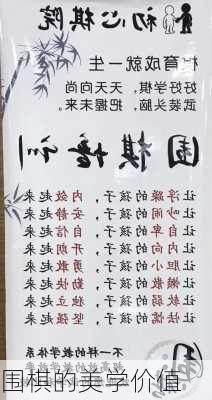 初心棋院
棋育成就一生
好好学棋 天天向尚
武装头脑 把握未来。
围棋培训
让浮躁的孩子，内敛起来
让吵闹的孩子，安静起来
让自卑的孩子，自信起来
让内向的孩子，开朗起来
让胆小的孩子，勇敢起来
让懒散的孩子，勤快起来
让软弱的孩子，独立起来
让怯懦的孩子，坚强起来
不一样的教学体系
围棋的美学价值